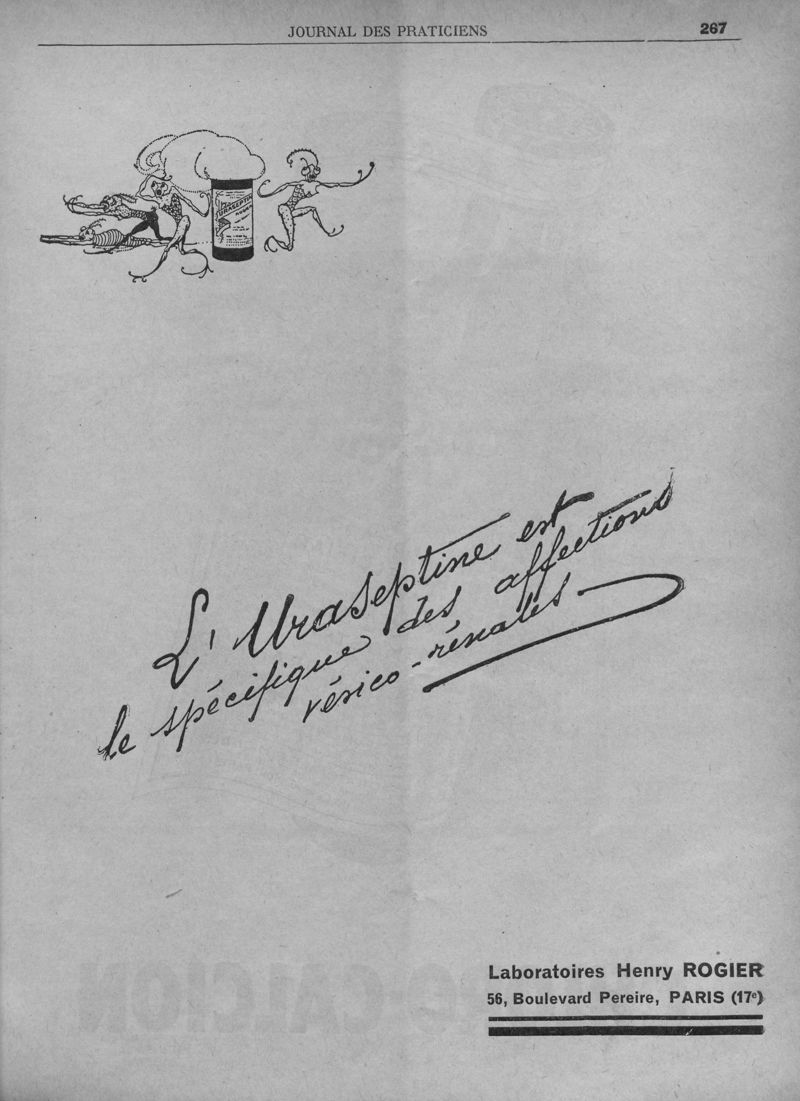 JOURNAL DES PRATICIENS
267
URASEPTINE
L'Uraseptine est
le spécifique des affections
vésico-rénales
Laboratoires Henry ROGIER
56, Boulevard Pereire, PARIS (17e)